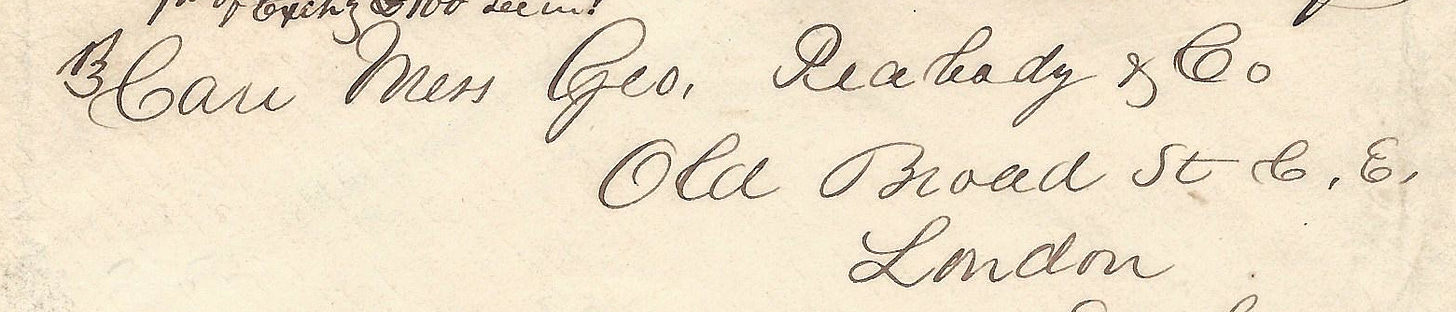 of Exchg £100
Care Mess Geo. Peabody & Co
Old Broad St C. E.
London